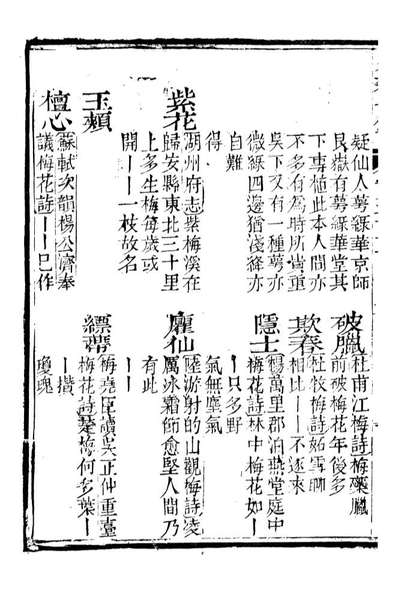 疑仙人萼綠華京師
艮嶽有萼綠華堂其
下專植此本人間亦
不多有為時所貴重
吳下又有一種萼亦
微綠四邊猶淺絳亦
自難
得
紫花
湖州府志紫梅溪在
歸安縣東北三十里
上多生梅每歲或
開｜｜一枝故名
玉頰
檀心
蘇軾次韻楊公濟奉
議梅花詩｜｜巳作
破臘
杜甫江梅詩梅蘂臘
前破梅花年後多
欺春
杜牧梅詩妬雪聊
相比｜｜不逐來
隱士
楊萬里郡泊燕堂庭中
梅花詩林中梅花如｜
｜只多野
氣無塵氣
臞仙
陸游射的山觀梅詩凌
厲冰霜節愈堅人間乃
有此
｜｜
縹蔕
梅堯臣讀吳正仲重臺
梅花詩楚梅何多葉｜
｜攢
瓊瑰